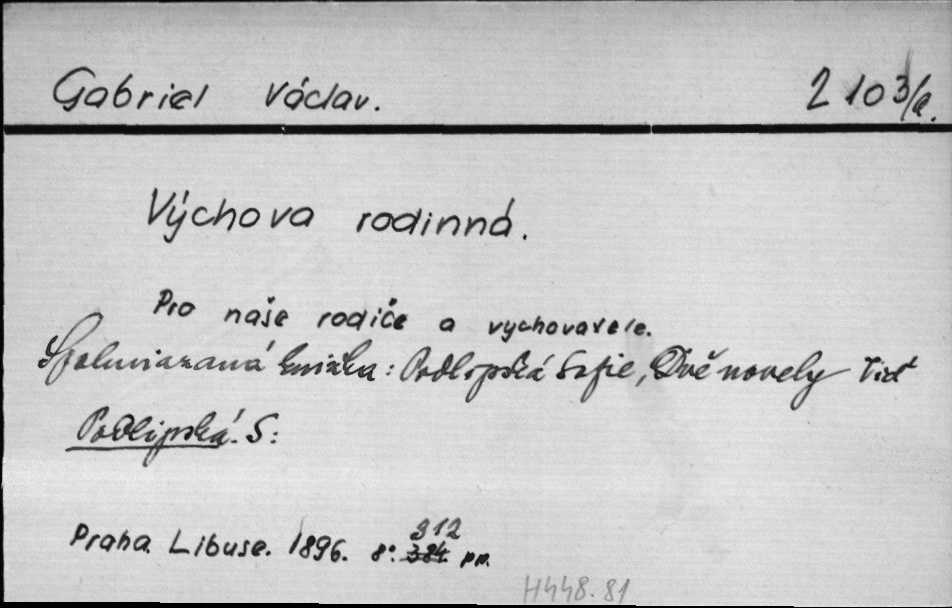 Gabriel Václav. 2 103/a.
Výchova rodinná.
Pro naše rodiče a vychovatele.
knížka: Podlipská Sofie, Dvě novely Vid
Podlipská. S:
Praha Libuse. 1896. 8°. 384 312 pp.
H448.81